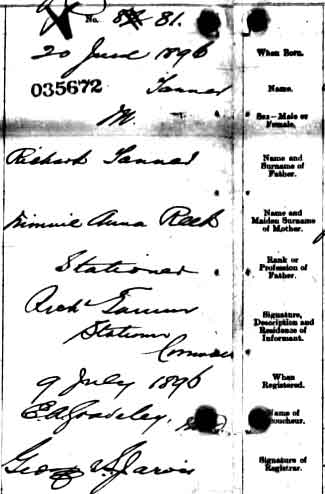 No. 81.
20 June 1896 When Born.
035672 Tanner Name.
M. Sex—Male or Female.
Richard Tanner Name and Surname of Father.
Minnie Anna Reek Name and Maiden Surname of Mother.
Stationer Rank or Profession of Father.
Rich Tanner
Stationer Signature, Description and Residence of Informant.
9 July 1896 When Registered.
Name of
Geo Jarvis Signature of Registrar.